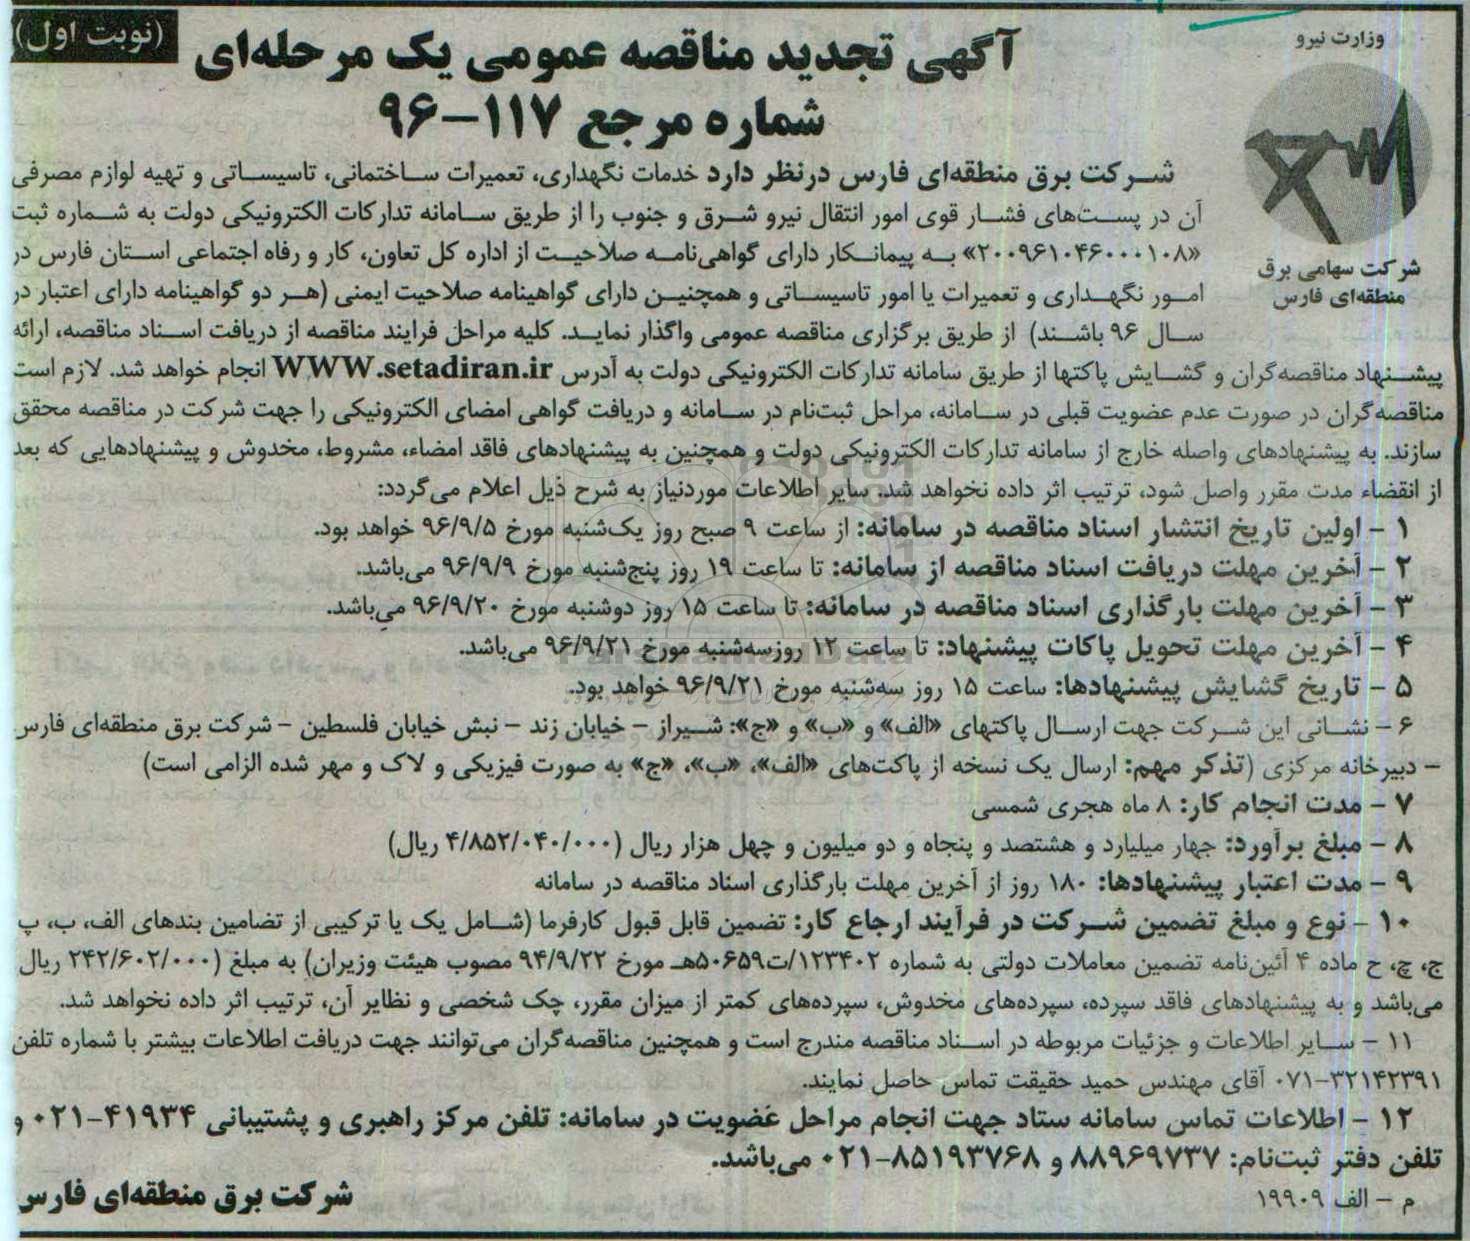 (نوبت اول)
وزارت نیرو
آگهی تجدید مناقصه عمومی یک مرحله‌ای
شماره مرجع ۱۱۷-۹۶
شرکت سهامی برق
منطقه‌ای فارس
شرکت برق منطقه‌ای فارس درنظر دارد خدمات نگهداری، تعمیرات ساختمانی، تاسیساتی و تهیه لوازم مصرفی
آن در پست‌های فشار قوی امور انتقال نیرو شرق و جنوب را از طریق سامانه تدارکات الکترونیکی دولت به شماره ثبت
«۲۰۰۹۶۱۰۴۶۰۰۰۱۰۸» به پیمانکار دارای گواهی‌نامه صلاحیت از اداره کل تعاون، کار و رفاه اجتماعی استان فارس در
امور نگهداری و تعمیرات یا امور تاسیساتی و همچنین دارای گواهینامه صلاحیت ایمنی (هر دو گواهینامه دارای اعتبار در
سال ۹۶ باشند) از طریق برگزاری مناقصه عمومی واگذار نماید. کلیه مراحل فرایند مناقصه از دریافت اسناد مناقصه، ارائه
پیشنهاد مناقصه‌گران و گشایش پاکتها از طریق سامانه تدارکات الکترونیکی دولت به آدرس WWW.setadiran.ir انجام خواهد شد. لازم است
مناقصه‌گران در صورت عدم عضویت قبلی در سامانه، مراحل ثبت‌نام در سامانه و دریافت گواهی امضای الکترونیکی را جهت شرکت در مناقصه محقق
سازند. به پیشنهادهای واصله خارج از سامانه تدارکات الکترونیکی دولت و همچنین به پیشنهادهای فاقد امضاء، مشروط، مخدوش و پیشنهادهایی که بعد
از انقضاء مدت مقرر واصل شود، ترتیب اثر داده نخواهد شد. سایر اطلاعات موردنیاز به شرح ذیل اعلام می‌گردد:
۱ - اولین تاریخ انتشار اسناد مناقصه در سامانه: از ساعت ۹ صبح روز یک‌شنبه مورخ ۹۶/۹/۵ خواهد بود.
۲ - آخرین مهلت دریافت اسناد مناقصه از سامانه: تا ساعت ۱۹ روز پنج‌شنبه مورخ ۹۶/۹/۹ می‌باشد.
۳ - آخرین مهلت بارگذاری اسناد مناقصه در سامانه: تا ساعت ۱۵ روز دوشنبه مورخ ۹۶/۹/۲۰ می‌باشد.
۴ - آخرین مهلت تحویل پاکات پیشنهاد: تا ساعت ۱۲ روزسه‌شنبه مورخ ۹۶/۹/۲۱ می‌باشد.
۵ - تاریخ گشایش پیشنهادها: ساعت ۱۵ روز سه‌شنبه مورخ ۹۶/۹/۲۱ خواهد بود.
۶ - نشانی این شرکت جهت ارسال پاکتهای «الف» و «ب» و «ج»: شیراز - خیابان زند - نبش خیابان فلسطین - شرکت برق منطقه‌ای فارس
- دبیرخانه مرکزی (تذکر مهم: ارسال یک نسخه از پاکت‌های «الف»، «ب»، «ج» به صورت فیزیکی و لاک و مهر شده الزامی است)
۷ - مدت انجام کار: ۸ ماه هجری شمسی
۸ - مبلغ برآورد: چهار میلیارد و هشتصد و پنجاه و دو میلیون و چهل هزار ریال (۴/۸۵۲/۰۴۰/۰۰۰ ریال)
۹ - مدت اعتبار پیشنهادها: ۱۸۰ روز از آخرین مهلت بارگذاری اسناد مناقصه در سامانه
۱۰ - نوع و مبلغ تضمین شرکت در فرآیند ارجاع کار: تضمین قابل قبول کارفرما (شامل یک یا ترکیبی از تضامین بندهای الف، ب، پ
ج، چ، ح ماده ۴ آئین‌نامه تضمین معاملات دولتی به شماره ۱۲۳۴۰۲/ت۵۰۶۵۹هـ مورخ ۹۴/۹/۲۲ مصوب هیئت وزیران) به مبلغ (۲۴۲/۶۰۲/۰۰۰ ریال
می‌باشد و به پیشنهادهای فاقد سپرده، سپرده‌های مخدوش، سپرده‌های کمتر از میزان مقرر، چک شخصی و نظایر آن، ترتیب اثر داده نخواهد شد.
۱۱ - سایر اطلاعات و جزئیات مربوطه در اسناد مناقصه مندرج است و همچنین مناقصه‌گران می‌توانند جهت دریافت اطلاعات بیشتر با شماره تلفن
۰۷۱-۳۲۱۴۲۳۹۱ آقای مهندس حمید حقیقت تماس حاصل نمایند.
۱۲ - اطلاعات تماس سامانه ستاد جهت انجام مراحل عضویت در سامانه: تلفن مرکز راهبری و پشتیبانی ۴۱۹۳۴-۰۲۱ و
تلفن دفتر ثبت‌نام: ۸۸۹۶۹۷۳۷ و ۸۵۱۹۳۷۶۸-۰۲۱ می‌باشد.
م - الف ۱۹۹۰۹
شرکت برق منطقه‌ای فارس